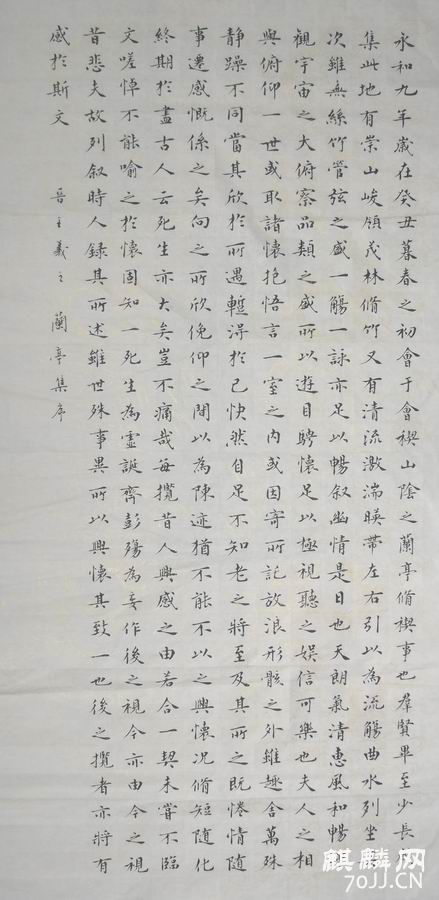 永和九年歲在癸丑暮春之初會于會稧山陰之蘭亭脩稧事也羣賢畢至少長
集此地有崇山峻領茂林脩竹又有清流激湍暎帶左右引以為流觴曲水列坐
次雖無絲竹管弦之盛一觴一詠亦足以暢叙幽情是日也天朗氣清惠風和暢
觀宇宙之大俯察品類之盛所以遊目騁懷足以極視聽之娛信可樂也夫人之相
與俯仰一世或取諸懷抱悟言一室之內或因寄所託放浪形骸之外雖趣舍萬殊
静躁不同當其欣於所遇蹔得於己快然自足不知老之將至及其所之既惓情隨
事遷感慨係之矣向之所欣俛仰之閒以為陳迹猶不能不以之興懷況脩短隨化
終期於盡古人云死生亦大矣豈不痛哉每攬昔人興感之由若合一契未嘗不臨
文嗟悼不能喻之於懷固知一死生為虛誕齊彭殤為妄作後之視今亦由今之視
昔悲夫故列叙時人録其所述雖世殊事異所以興懷其致一也後之攬者亦將有
感於斯文 晋王羲之 蘭亭集序
麒麟网
70JJ.CN